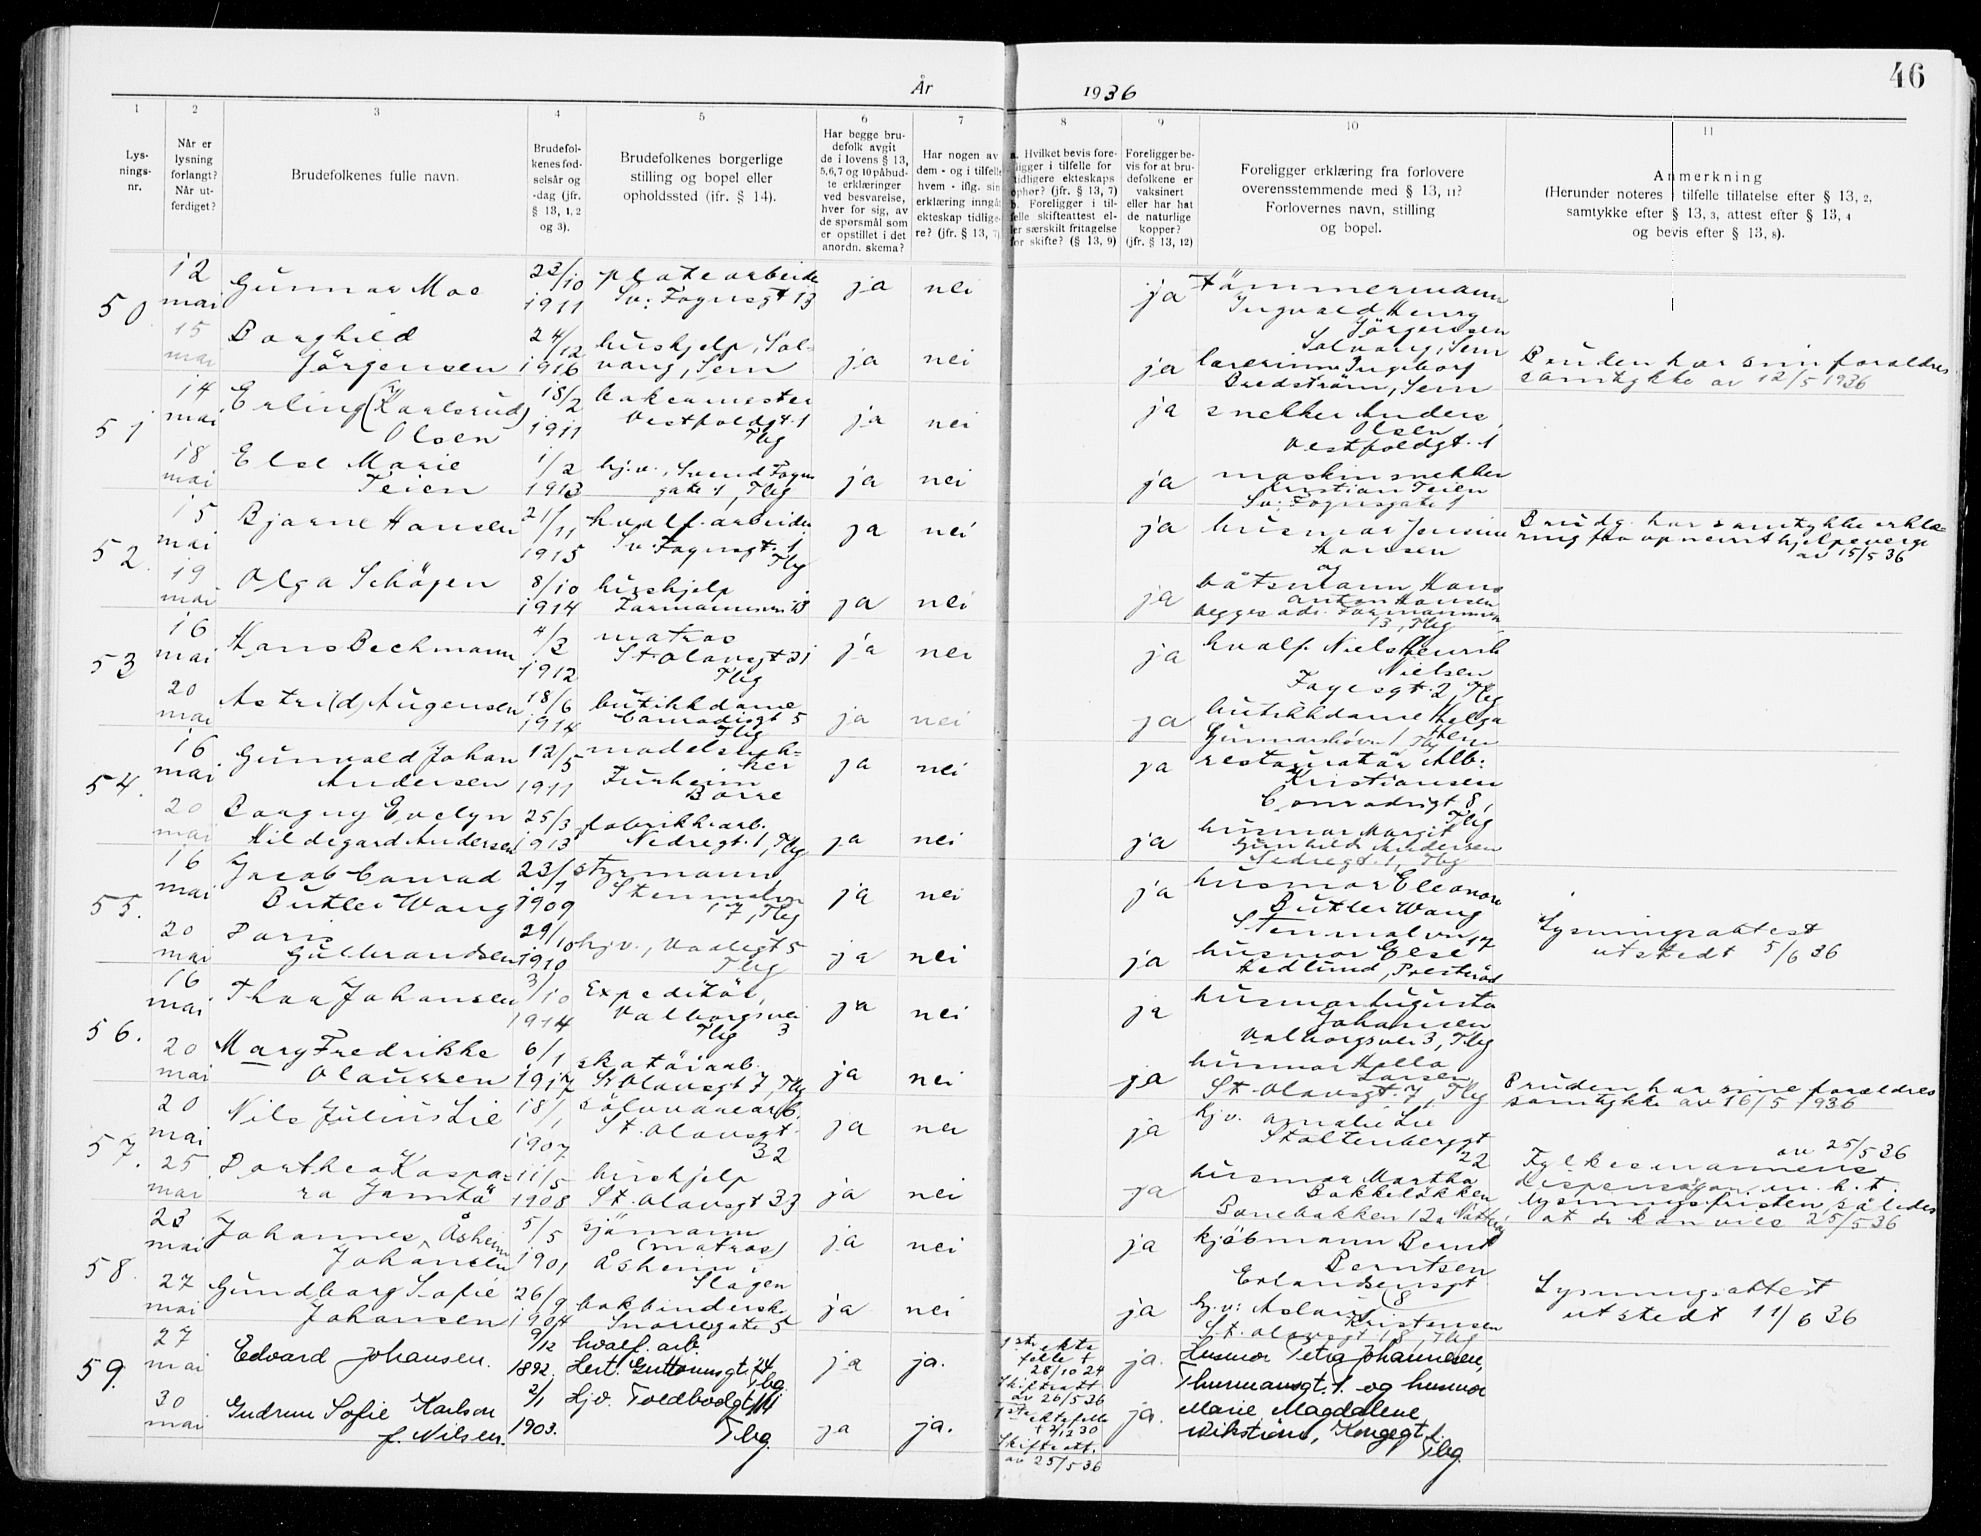 46
År 1936
1 2 3 4 5 6 7 8 9 10 11
Lysnings-nr.
Når er lysning forlangt? Når utferdiget?
Brudefolkenes fulle navn.
Brudefolkenes fødselsår og -dag (jfr. § 13, 1, 2 og 3).
Brudefolkenes borgerlige stilling og bopel eller opholdssted (jfr. § 14).
Har begge brudefolk avgit de i lovens § 13, 5,6,7 og 10 påbudte erklæringer ved besvarelse, hver for sig, av de spørsmål som er opstillet i det anordn. skema?
Har nogen av dem - og i tilfelle hvem - iflg. sin erklæring inngåt ekteskap tidligere? (jfr. § 13, 7)
a. Hvilket bevis foreligger i tilfelle for tidligere ekteskaps ophør? (jfr. § 13, 7)
b. Foreligger i tilfelle skifteattest eller særskilt fritagelse for skifte? (§ 13, 9)
Foreligger bevis for at brudefolkene er vaksinert eller har hat de naturlige kopper? (jfr. § 13, 12)
Foreligger erklæring fra forlovere overensstemmende med § 13, 11? Forlovernes navn, stilling og bopel.
Anmerkning
(Herunder noteres i tilfelle tillatelse efter § 13, 2, samtykke efter § 13, 3, attest efter § 13, 4 og bevis efter § 13, 8).
50.
12 mai Gunnar Moe 23/10 1911 platearbeide
Sv. Foynsgt 13 ja nei ja
tömmermann
Ingvald Henry
Jörgensen
Solvang, Sem
15 mai Borghild
Jörgensen 24/12 1916 hushjelp, Sol-
vang, Sem ja nei ja
lærerinne Ingeborg
Bredström, Sem
Bruden har sin foraldres
samtykke av 12/5 1936
51
14 mai Erling (Karlsrud)
Olsen 18/2 1911 bakermester
Vestfoldgt. 1
Tbg ja nei ja
snekker Anders
Olsen
Vestfoldgt. 1
18 mai Else Marie
Teien 1/2 1913 hj.v., Svend Foyns
gate 1, Tbg ja nei ja
maskinsnekker
Kristian Teien
Sv. Foynsgate 1
52.
15 mai Bjarne Hansen 21/11 1915 hvalf. arbeider
Sv. Foynsgt. 1
Tbg ja nei ja
husmor Jensine
Hansen
Brudg. har samtykke erklæ-
ring fra opnevnt hjelpeverge
av 15/5 36
19 mai Olga Schöyen 8/10 1914 hushjelp
Farmannsvn 13 ja nei ja
og
båtsmann Hans
Anton Hansen
begges adr. Farmannsvn
13, Tbg
53
16 mai Hans Bechmann 4/3 1912 matros
St. Olavsgt 31
Tbg ja nei ja
hvalf. Niels Henrik
Nielsen
Fayesgt. 2, Tbg
20 mai Astri(d) Augensen 18/6 1914 butikkdame
Conradisgt 5
Tbg ja nei ja
butikkdame Helga
Lem
Gunnarsbövn 1, Tbg
54.
16 mai Gunvald Johan
Andersen 12/5 1911 modelsnek-
ker
Furheim
Borre ja nei ja
restauratör Alb.
Kristiansen
Conradisgt 8,
Tbg
20 mai Borgny Evelyn
Hildegard Andersen 25/3 1913 fabrikkarb.
Nedregt. 1, Tbg ja nei ja
husmor Margit
Gunhild Andersen
Nedregt. 1, Tbg
55.
16 mai Jacob Conrad
Butler Wang 23/1 1909 styrmann,
Stenmalvn
17, Tbg ja nei ja
husmor Eleonore
Butler Wang
Stenmalvn 17
20 mai Doris
Gulbrandsen 29/10 1910 hjv., Vaalegt 5
Tbg ja nei ja
husmor Else
Hedlund, Presteröd
Lysningsattest
utstedt 5/6 36
56.
16 mai Thor Johansen 3/10 1914 Expeditör,
Valborgsvei
Tbg 3 ja nei ja
husmor Augusta
Johansen
Valborgsvei 3, Tbg
20 mai Mary Fredrikke
Olaussen 6/1 1917 skotöiarb.
St. Olavsgt 7, Tbg ja nei ja
husmor Hella
Larsen
St. Olavsgt. 7, Tbg
Bruden har sine forældres
samtykke av 16/5 1936
57.
20 mai Nils Julius Lie 18/1 1907 sölvvarearb.
St. Olavsgt.
32 ja nei ja
hj.v. Amalie Lie
Stoltenberggt
22
25 mai Dorthea Kaspa-
ra Jamtö 11/5 1908 hushjelp
St. Olavsgt 33 ja nei ja
husmor Martha
Bakkelökken
Banebakken 12a Nötteröy
av 25/5 36
Fylkesmannens
dispensasjon m. h. t.
lysningsfristen, således
at de kan vies 25/5 36
58.
23 mai Johannes Åsheim
Johansen 5/5 1901 sjömann
(matros)
Åsheim i
Slagen ja nei ja
kjöbmann Bernt
Berntsen
Erlandsensgt
8
27 mai Gundborg Sofie
Johansen 26/9 1904 bokbinderske
Snorresgate 5 ja nei ja
hj.v. Aslaug
Kristensen
St. Olavsgt 18, Tbg
Lysningsattest
utstedt 11/6 36
59.
27 mai Edvard Johansen. 9/12 1892. hvalf. arb.
Hert. Guttormsgt. 24
Tbg. ja ja.
1ste ekte
felle †
28/10 24
Skifteatt.
av 26/5 36 ja.
Husmor Petra Johannesen,
Thurmansgt. 1. og husmor
30 mai Gudrun Sofie Karlson
f. Nilsen. 2/1 1903. Hjv. Toldbodgt. 14
Tbg. ja ja.
1ste ektefelle
† 2/12 30
Skifteatt.
av 25/5 36 ja.
Marie Magdalene
Wikström, Kongegt. 1.
Tbg.